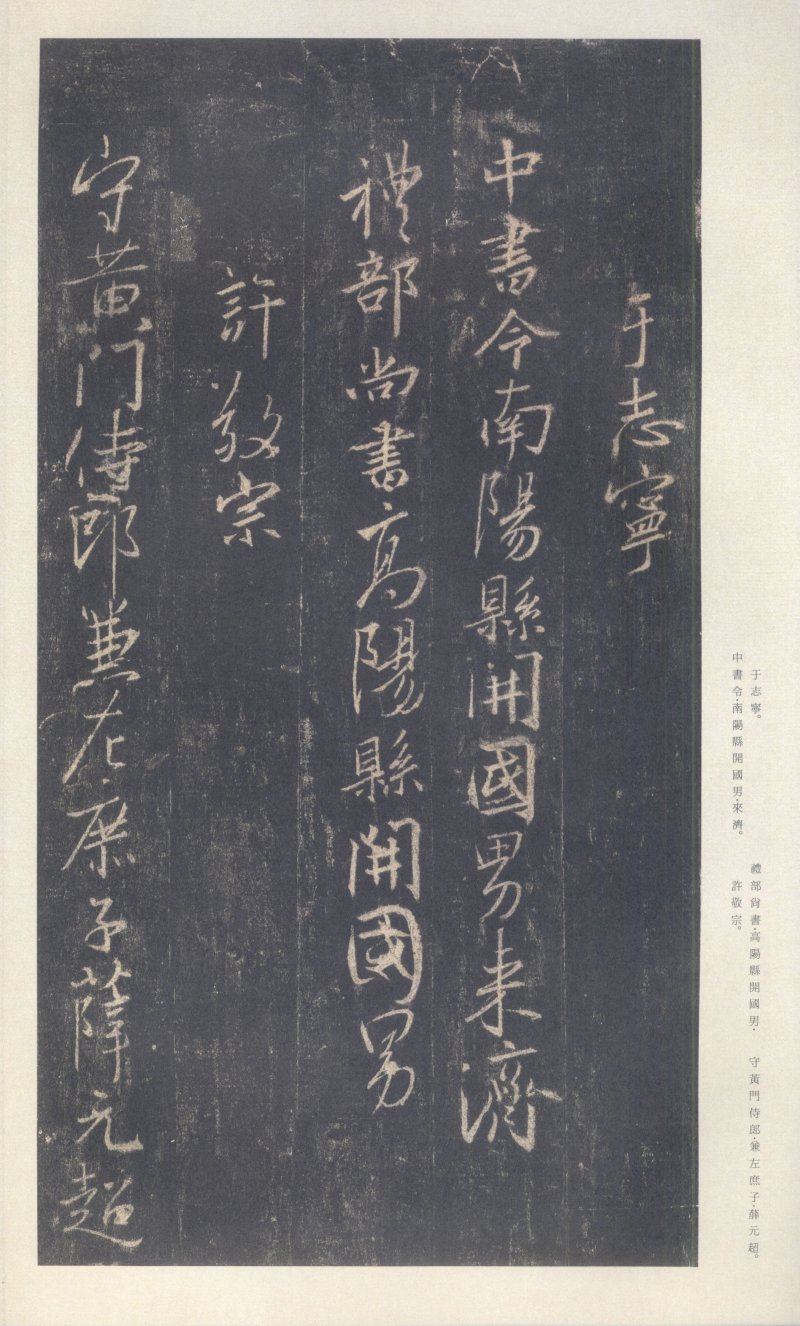 于志寧
中書令南陽縣開國男来濟
禮部尚書高陽縣開國男
許敬宗
守黄门侍郎兼左庶子薛元超
于志寧。
中書令·南陽縣開國男·來濟。
禮部尙書·高陽縣開國男·
許敬宗。
守黃門侍郎·兼左庶子·薛元超。